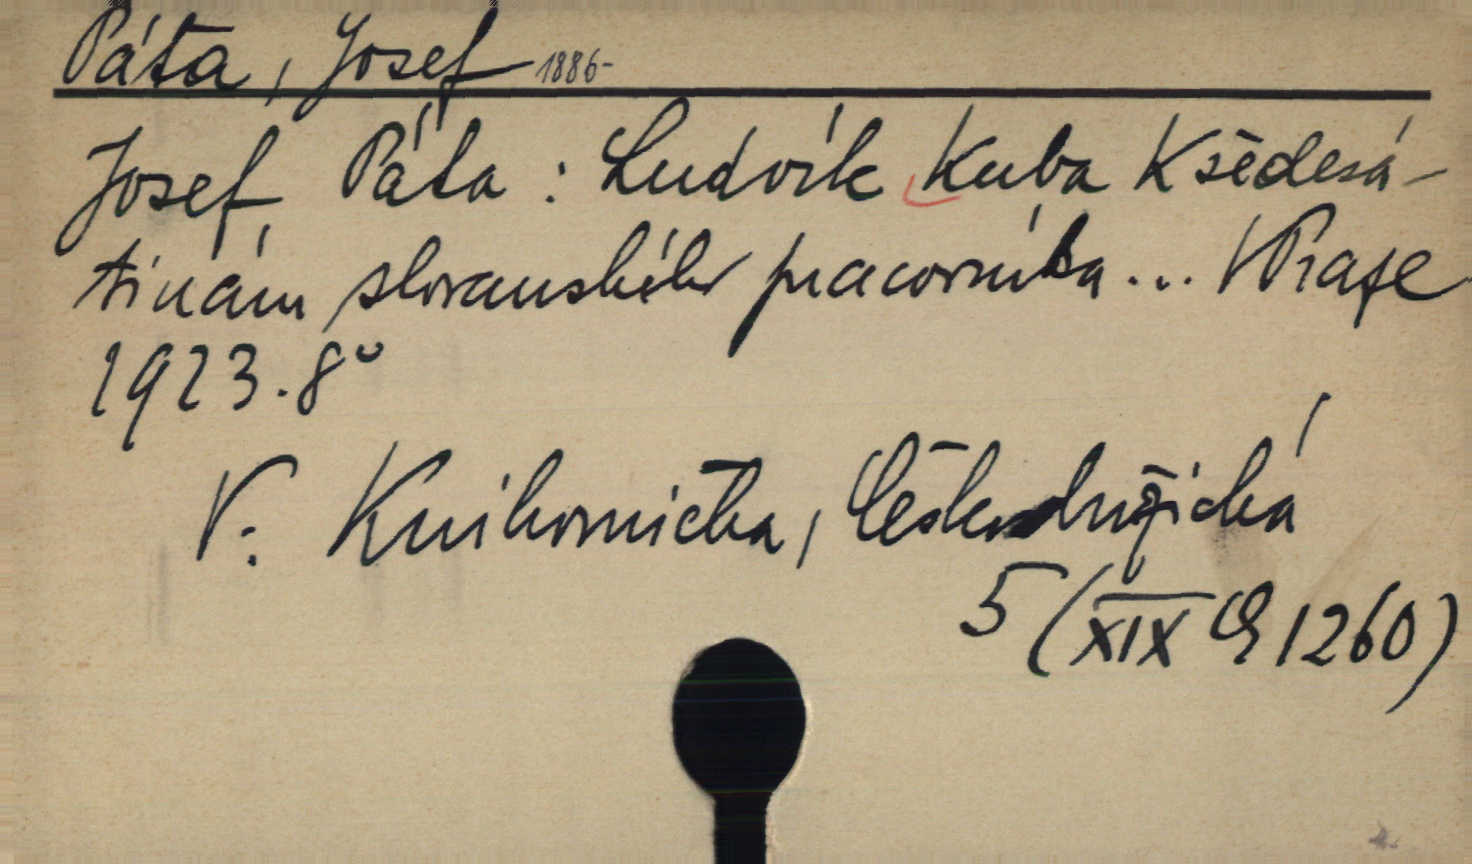 Páta, Josef 1886-
Josef Páta: Ludvík Kuba K šedesá-
tinám slovanského pracovníka... V Praze
1923. 8°
V: Knihovnička, Českolužická
5 (XIX G 1260)